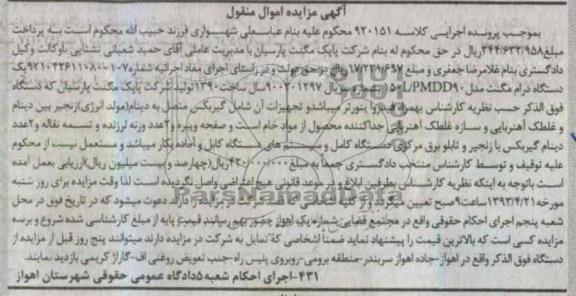 آگهی مزایده اموال منقول
بموجب پرونده اجرایی کلاسه ۹۲۰۱۵۱ محکوم علیه بنام عباسعلی شهسواری فرزند حبیب الله محکوم است به پرداخت
مبلغ ۳۴۴/۶۳۲/۹۵۸ ریال در حق محکوم له بنام شرکت بابک مگنت پارسیان با مدیریت عاملی آقای حمید شعبانی نشتایی باوکالت وکیل
دادگستری بنام غلامرضا جعفری و مبلغ ریال در حق دولت و در راستای اجرای مفاد اجرائیه شماره یک
دستگاه درام مگنت مدل PMDD۹۰ سال ساخت ۱۳۹۰ تولید شرکت بابک مگنت پارسیان که دستگاه
فوق الذکر حسب نظریه کارشناس بهمراه ویبره و تجهیزات آن شامل گیربکس متصل به دینام(مولد انرژی)زنجیر بین دینام
و غلطک آهنربایی و سازه غلطک آهنربایی جداکننده محصول از مواد خام است و صفحه ویبره و۲عدد وزنه لرزنده و تسمه نقاله و۲عدد
دینام گیربکس با زنجیر و تابلو برق مرکزی دستگاه کامل و سیستم های دستگاه کابل و آماده بکار میباشد و مستعمل نیست از محکوم
علیه توقیف و توسط کارشناس منتخب دادگستری جمعا به مبلغ ۴۲۰/۰۰۰/۰۰۰ ریال(چهارصد و بیست میلیون ریال)ارزیابی بعمل آمده
است باتوجه به اینکه نظریه کارشناس بطرفین ابلاغ و در موعد قانونی هیچ اعتراضی واصل نگردیده است لذا وقت مزایده برای روز شنبه
مورخه ۱۳۹۳/۴/۲۱ ساعت۹صبح تعیین میگردد دعوت میشود که در تاریخ فوق در محل
شعبه پنجم اجرای احکام حقوقی واقع در مجتمع قضایی شماره یک اهواز حضور بهم رسانند قیمت پایه از مبلغ کارشناسی شده شروع و برنده
مزایده کسی است که بالاترین قیمت را پیشنهاد نماید ضمنا اشخاصی که تمایل به شرکت در مزایده دارند میتوانند پنج روز قبل از مزایده از
دستگاه فوق الذکر واقع در اهواز-جاده اهواز سربندر-منطقه برومی-روبروی پلیس راه-جنب تعویض روغنی اف-گاراژ کریمی بازدید نمایند.
۴۳۱-اجرای احکام شعبه ۵دادگاه عمومی حقوقی شهرستان اهواز